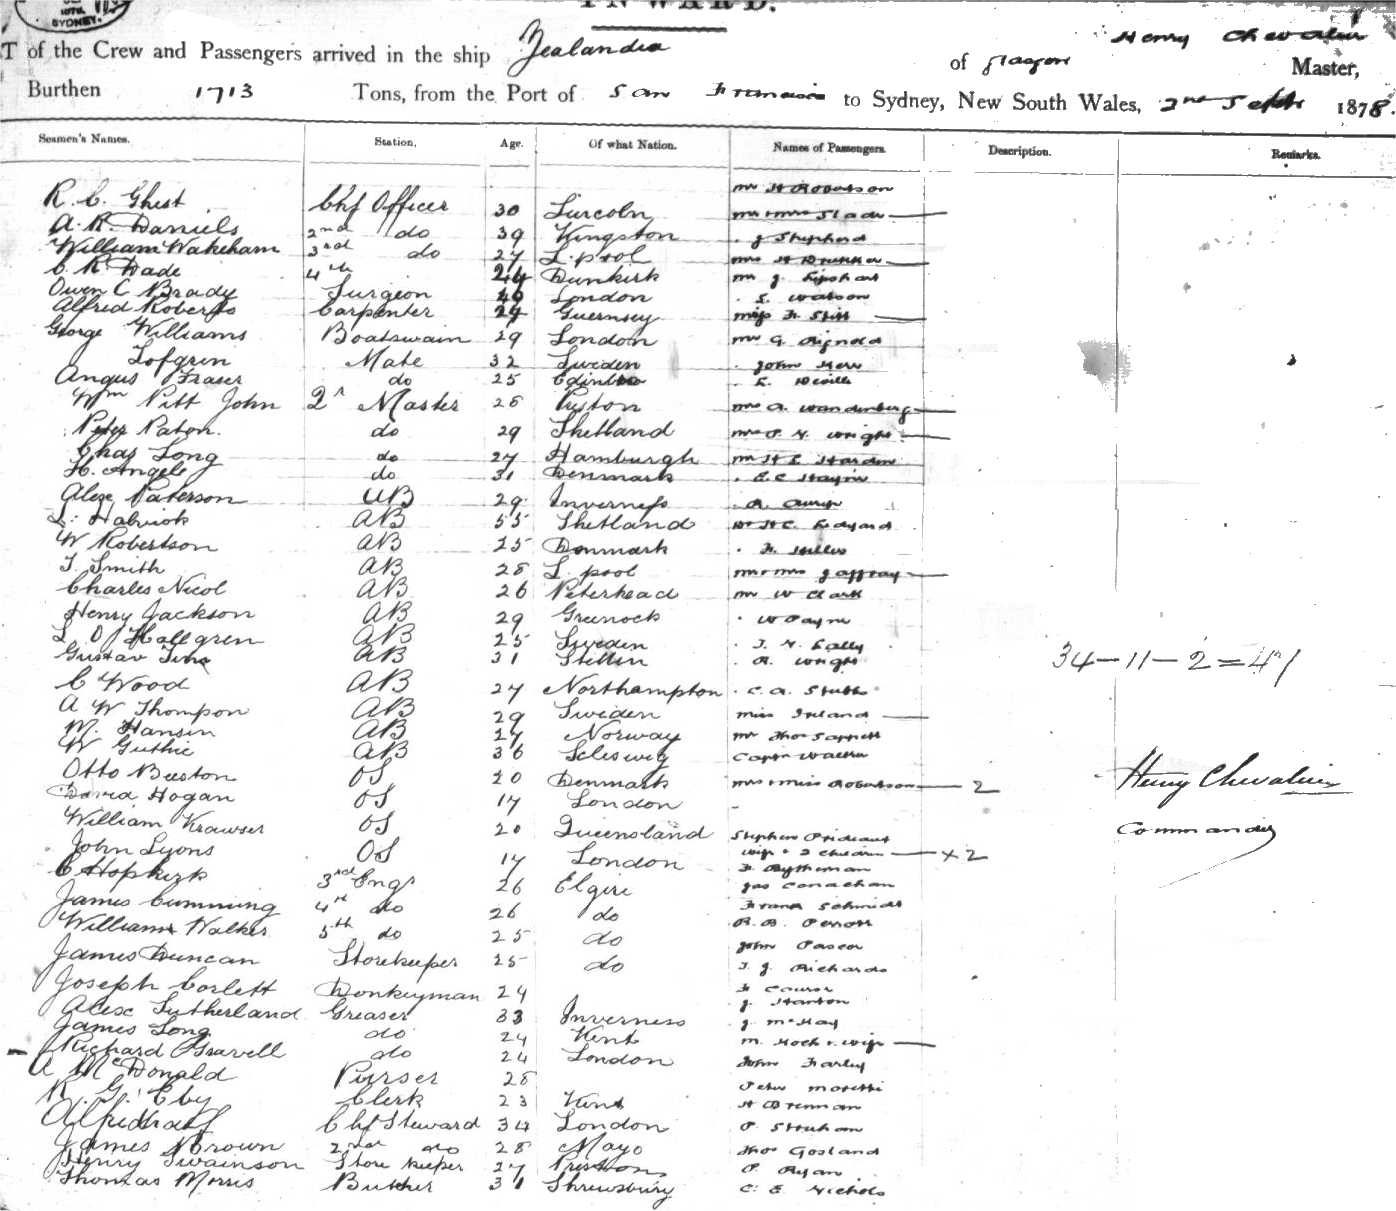 SYDNEY.
INWARD.
T of the Crew and Passengers arrived in the ship Zealandia of Glasgow Henry Chevalier Master,
Burthen 1713 Tons, from the Port of San Francisco to Sydney, New South Wales, 2nd Sept 1878.
Seamen's Names. Station. Age. Of what Nation. Names of Passengers. Description. Remarks.
R. C. Ghest Chf Officer 30 Lincoln Mr H Robertson
A. R. Daniels 2nd do 39 Kingston Mr & Mrs Slade
William Wakeham 3rd do 27 L.pool J Shepherd
C R Dade 4th 24 Dunkirk Mrs H
Owen C Brady Surgeon 40 London Mr J. Lipshat
Alfred Roberts Carpenter 29 Guernsey S. Watson
George Williams Boatswain 29 London Miss
Lofgren Mate 32 Sweden Mr G. Rignold
Angus Fraser do 25 Edinbro John Kerr
Wm Pitt John 2r Master 28 Preston E. Deville
Peter Paton. do 29 Shetland Mrs A. Wandenberg
Chas Long do 27 Hamburgh Mrs P. H. Wright
H. Angele do 31 Denmark Mr H E Harden
Alexr Paterson AB 29 Inverness E. C. Hayne
L. Halvick AB 55 Shetland
W Robertson AB 25 Denmark Dr H C Ledyard
T. Smith AB 28 L.pool
Charles Nicol AB 26 Peterhead Mr & Mrs Jaffray
Henry Jackson AB 29 Greenock Mr W Clark
L O Hallgren AB 25 Sweden W Payne
Gustav AB 31 Stettin T. H. Lally
C Wood AB 27 Northampton A. Wright
A W Thompson AB 29 Sweden C. A. Stubbs
M. Hansen AB 27 Norway Miss Ireland
W Guthrie AB 36 Sleswig Mr Thos
34 - 11 - 2 = 47
Otto Buston OS 20 Denmark Captn Walter
David Hogan OS 17 London Mrs & Miss Robertson 2
William Krawser OS 20 Queensland
John Lyons OS 17 London Stephen Prideaux
C Hopkirk 3rd Engr 26 Elgin wife & 2 children + 2
James Cumming 4th do 26 do Jas Conachan
William Walker 5th do 25 do Frank Schmidt
James Duncan Storekeeper 25 do R. B. Perrott
Joseph Corlett Donkeyman 24 John Pascoe
Alexr Sutherland Greaser 33 Inverness T. J. Richards
James Long do 24 Kent J. Stanton
Richard Gravell do 24 London J. McKay
A McDonald Purser 28 M. Koch & wife
R. G. Eby Clerk 23 Kent John Farley
Alfred Chf Steward 34 London Peter Moretti
James Brown 2nd do 28 Mayo H Brennan
Henry Swainson Store keeper 27 Preston
Thomas Morris Butcher 31 Shrewsbury Thos Gosland
P. Ryan
C. E. Nichols
Henry Chevalier
Commander